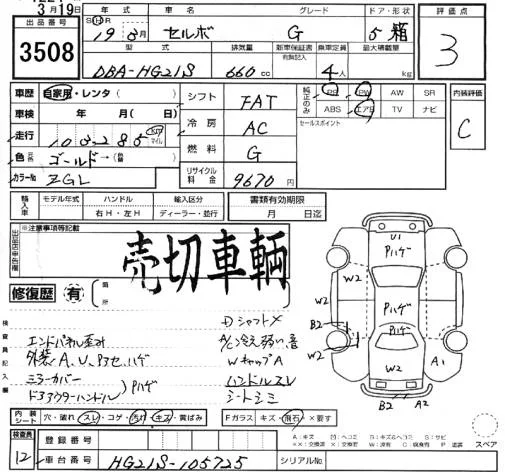 3月19日
出品番号
3508
年式 車名 グレード ドア・形状
19年 月 セルボ G 5 箱
型式 排気量 新車保証書 有無記入 乗車定員 最大積載量
DBA-HG21S 660cc 4人 kg
評価点
3
内装評価
C
車歴 自家用・レンタ( )
車検 年 月( )
走行 103,285 マイル
色 元色 ゴールド→(替 )
カラーNo ZGL
シフト FAT
冷房 AC
燃料 G
リサイクル料金 9670円
純正のみ PS PW AW SR
ABS エアB TV ナビ
セールスポイント
輸入車 モデル年式 ハンドル 輸入区分 書類有効期限
右H・左H ディーラー・並行 月 日迄
出品店申告欄
※注意事項等記載
売切車輌
修復歴 有 箇所
検査員記入欄
エンドパネル歪み
外装A、U、Pヨゼ、ハゲ
ミラーカバー
ドアアウターハンドル )Pハゲ
DシャフトX
A/C冷え弱い、音
WキャップA
ハンドルスレ
シートシミ
U1
Pハゲ
W2
W2
Pハゲ
B2
W2
Pハゲ
W2
A1
B2 A2
内装シート 穴・破れ・スレ・コゲ・汚れ・キズ・黄ばみ
Fガラス キズ・飛石・×要す
スペア
検査員
12
登録番号
車台番号 HG21S-105725
シリアルNo